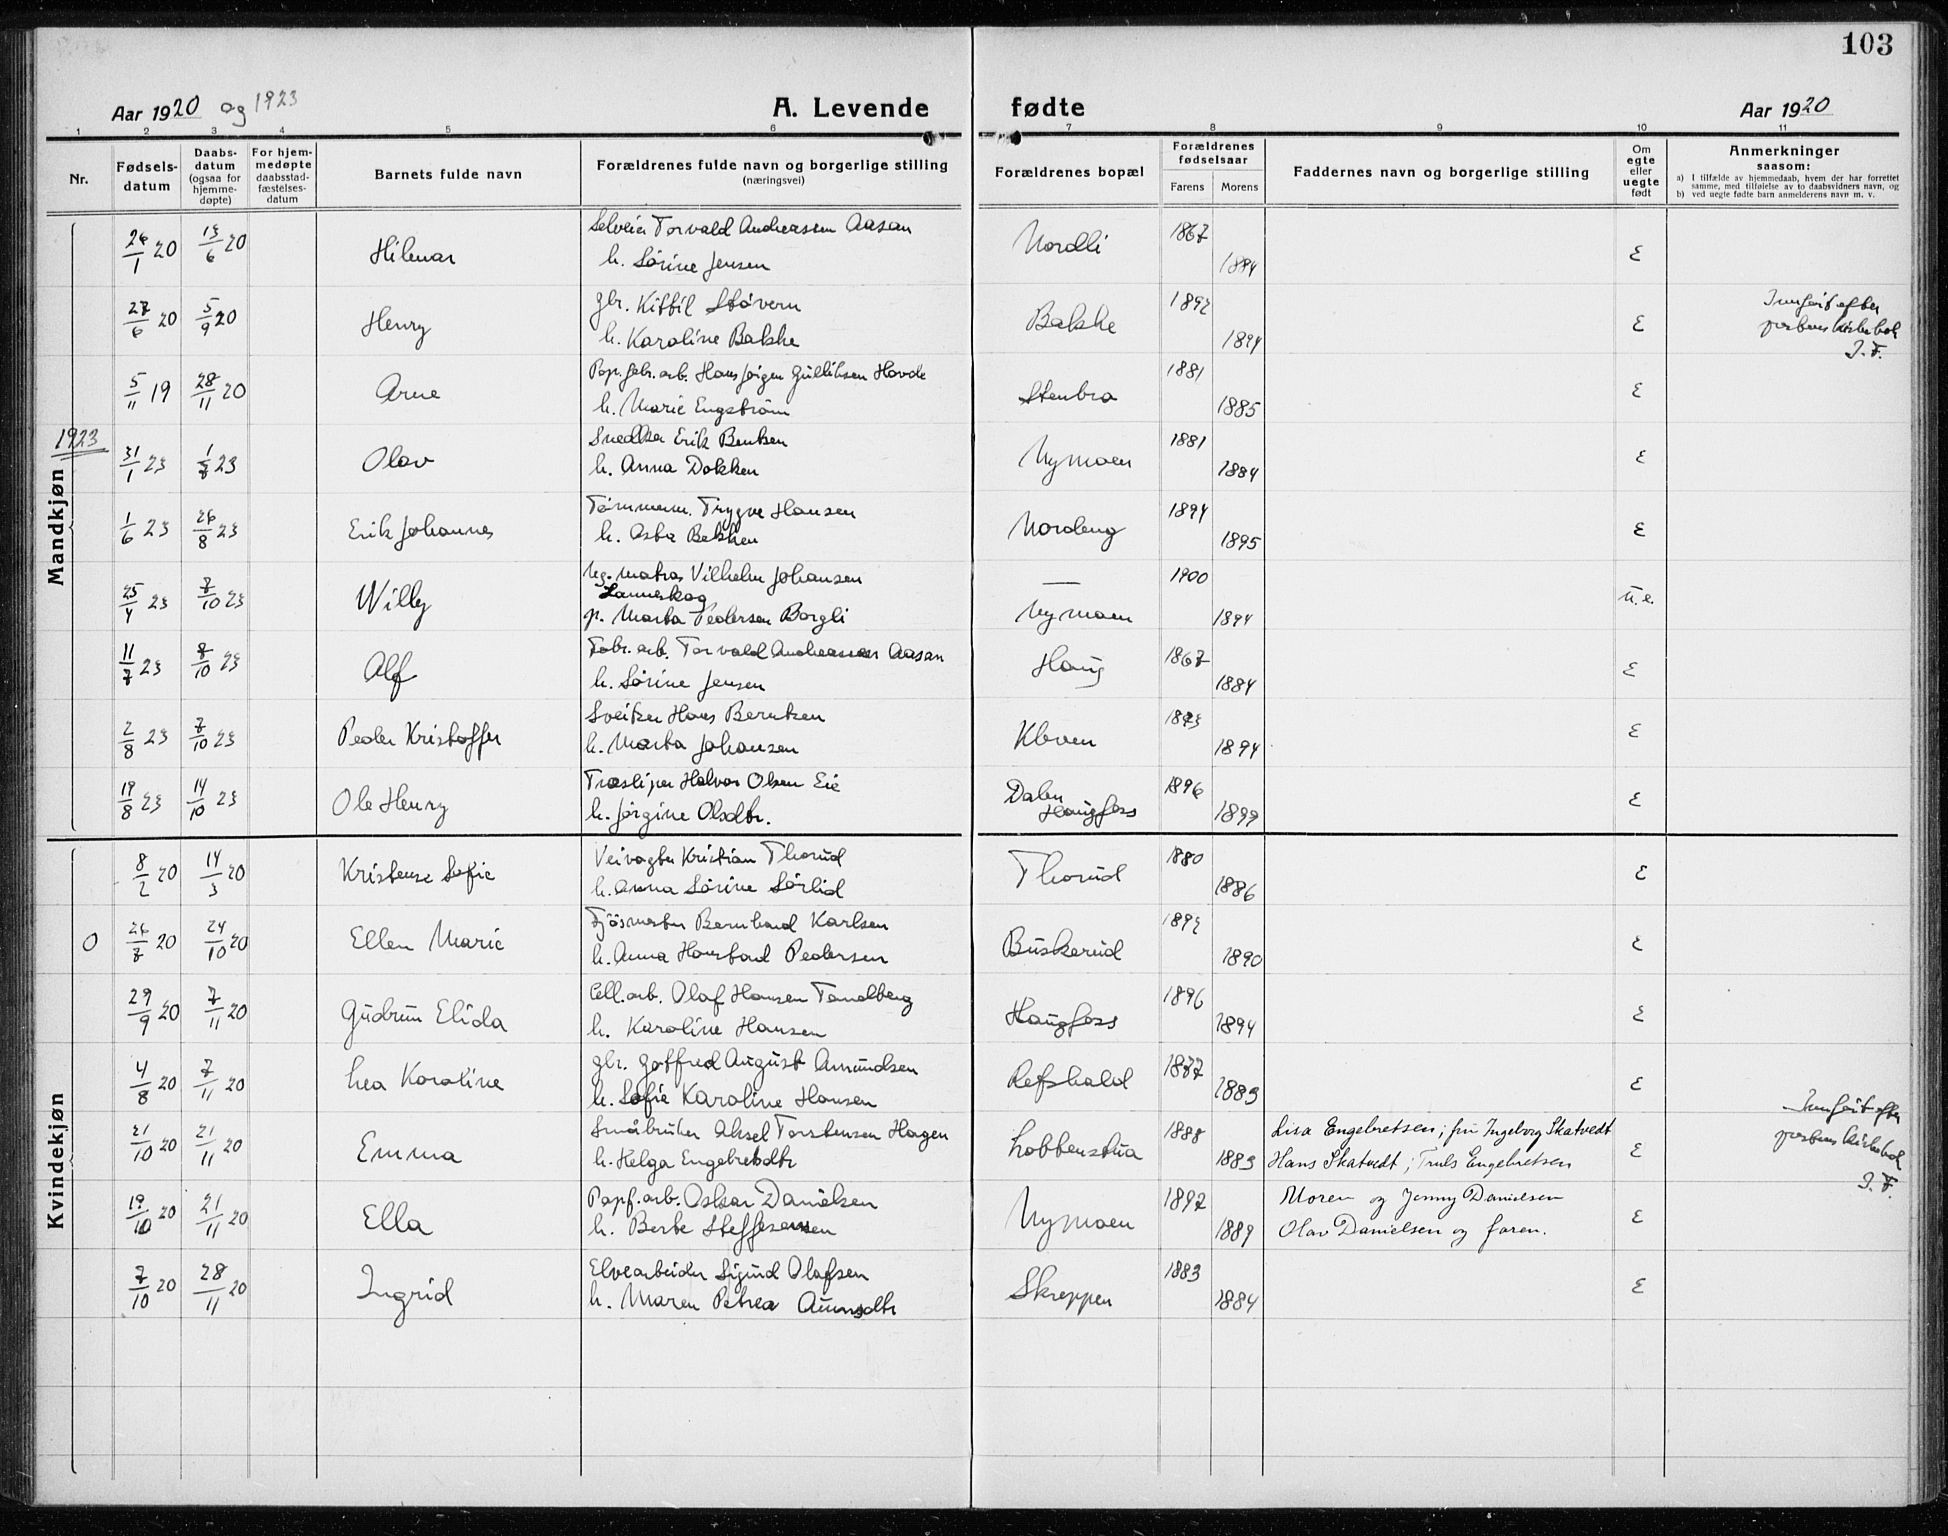 103
Aar 1920 og 1923
A. Levende fødte
Aar 1920
1 2 3 4 5 6 7 8 9 10 11
Nr.
Fødsels-
datum
Daabs-
datum
(ogsaa for
hjemme-
døpte)
For hjem-
medøpte
daabsstad-
fæstelses-
datum
Barnets fulde navn
Forældrenes fulde navn og borgerlige stilling
(næringsvei)
Forældrenes bopæl
Forældrenes
fødselsaar
Farens Morens
Faddernes navn og borgerlige stilling
Om
egte
eller
uegte
født
Anmerkninger
saasom:
a) I tilfælde av hjemmedaab, hvem der har forrettet
samme, med tilføielse av to daabsvidners navn, og
b) ved uegte fødte barn anmelderens navn m. v.
Mandkjøn
26/1 20 13/6 20 Hilmar Selveier Torvald Andreassen Aasan Nordli 1867 E
h. Sörine Jensen 1884
27/6 20 5/9 20 Henry gbr. Kittil Stövern Bakke 1892 E
h. Karoline Bakke 1894
Innført efter
prestens kirkebok
J. F.
5/11 19 28/11 20 Arne Pap.fabr.arb. Hans Jörgen Gulliksen Hovde Stenbro 1881 E
h. Marie Engström 1885
1923
31/1 23 1/7 23 Olav Snedker Erik Bentsen Nymoen 1881 E
h. Anna Dokken 1884
1/6 23 26/8 23 Erik Johannes Tömmerm. Trygve Hansen Nordeng 1894 E
h. Asta Bekken 1895
25/4 23 7/10 23 Willy Ug. matros Vilhelm Johansen — 1900 U.e.
Lanneskog
p. Marta Pedersen Borgli Nymoen 1894
11/7 23 7/10 23 Alf Fabr.arb. Torvald Andreassen Aasan Haug 1867 E
h. Sörine Jensen 1884
2/8 23 7/10 23 Peder Kristoffer Sveiser Hans Berntsen Kleven 1893 E
h. Marta Johansen 1894
19/8 23 14/10 23 Ole Henry Træsliper Halvor Olsen Eie Dalen 1896 E
h. Jörgine Olsdtr. Haugfoss 1899
Kvindekjøn
8/2 20 14/3 20 Kristense Sofie Veivogter Kristian Thorud Thorud 1880 E
h. Anna Sörine Sörlid 1886
0 26/7 20 24/10 20 Ellen Marie Fjösmester Bernhard Karlsen Buskerud 1892 E
h. Anna Harstad Pedersen 1890
29/9 20 7/11 20 Gudrun Elida Cell.arb. Olaf Hansen Tandberg Haugfoss 1896 E
h. Karoline Hansen 1894
4/8 20 7/11 20 Lea Karoline gbr. Gotfred August Amundsen Refshald 1877 E
h. Sofie Karoline Hansen 1883
21/10 20 21/11 20 Emma Småbruker Aksel Torstensen Hagen Lobbenstua 1888 Lisa Engebretsen; fru Ingeborg Skatvedt E
h. Helga Engebretsdtr 1883 Hans Skatvedt; Truls Engebretsen
Innført efter
prestens kirkebok
J. F.
19/10 20 21/11 20 Ella Papf.arb. Oskar Danielsen Nymoen 1897 Moren og Jenny Danielsen E
h. Berte Steffensen 1889 Olav Danielsen og faren.
7/10 20 28/11 20 Ingrid Elvearbeider Sigurd Olafsen Skreppen 1883 E
h. Maren Petrea Aunsdtr 1884